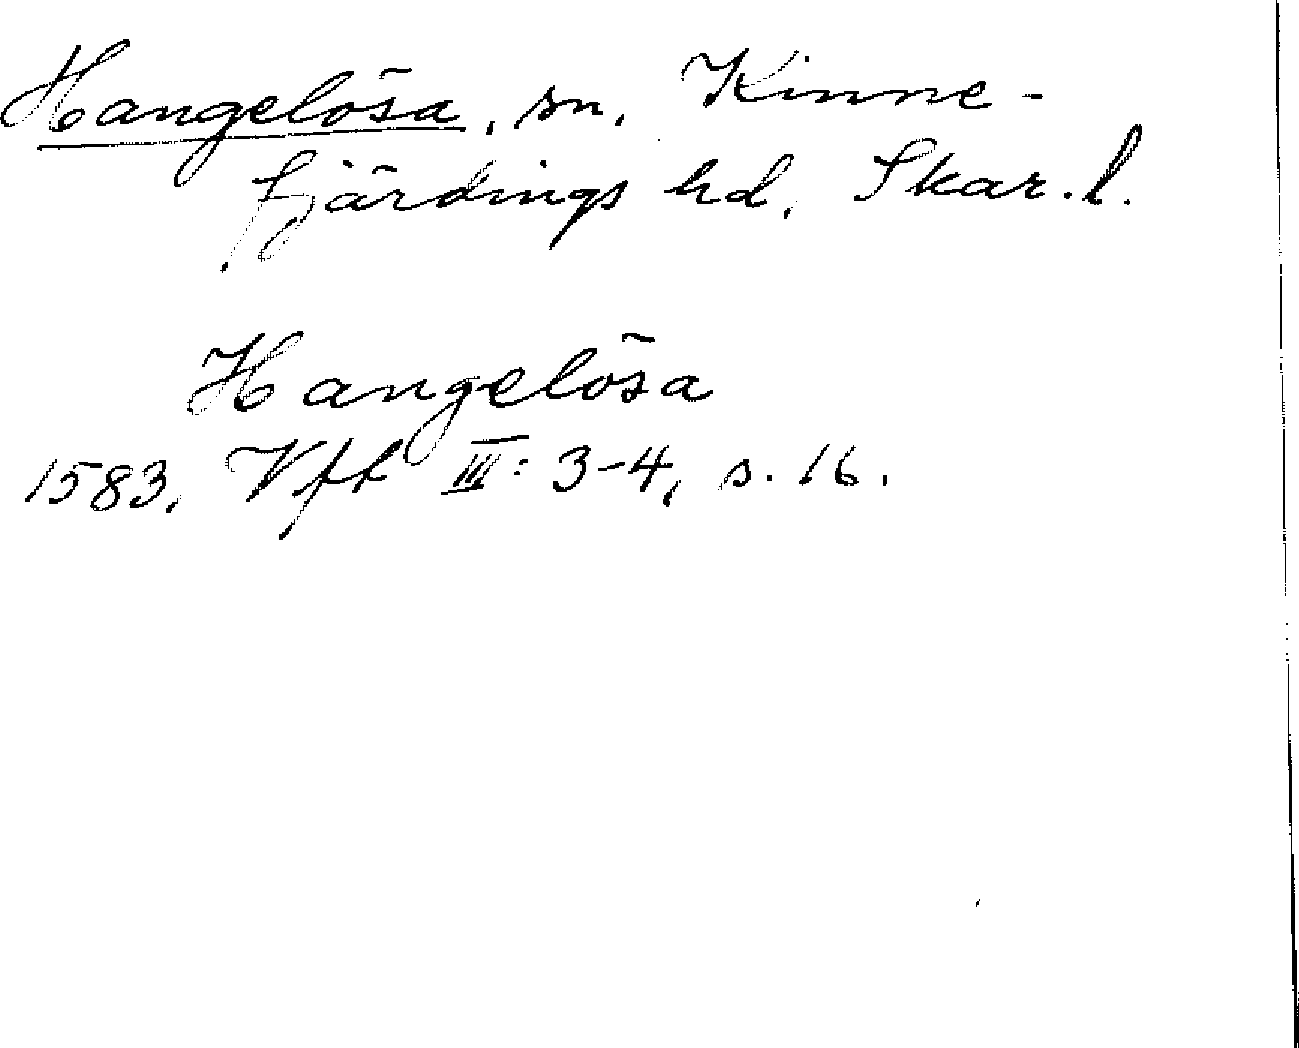 Hangelösa, sn, Kinne-
fjärdings hd, Skar. l.
Hangelösa
1583, Vft III: 3-4, s. 16.